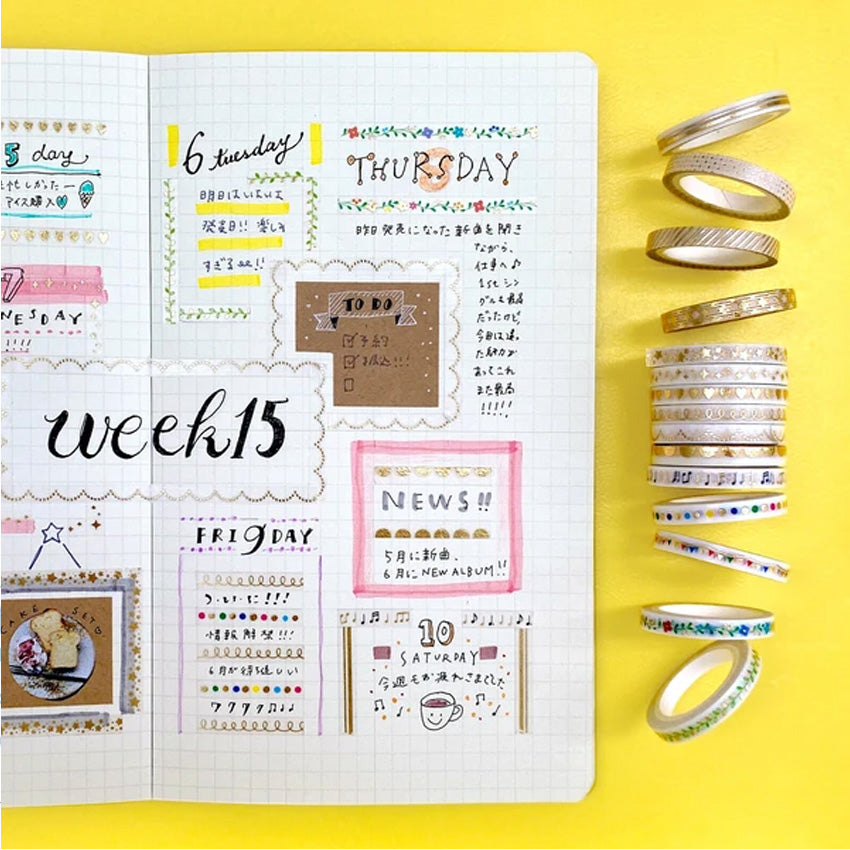 5 day
アイス購入
7
NESDAY
!!!!
week15
CAKE SET
6 tuesday
明日はいよいよ
発売日!! 楽しみ
すぎるぜ!!
THURSDAY
昨日発売になった新曲を聞き
ながら、
仕事へ♪
1st シン
グルも最高
だったけど、
今回は違っ
た魅力が
あってこれ
また最高
!!!!!
TO DO
予約
振込!!!
NEWS!!
5月に新曲、
6月にNEW ALBUM!!
FRI9DAY
情報解禁!!!
6月が待ち遠しい
ワクワクワク♫♩♩
10
SATURDAY
今週もお疲れさまでした